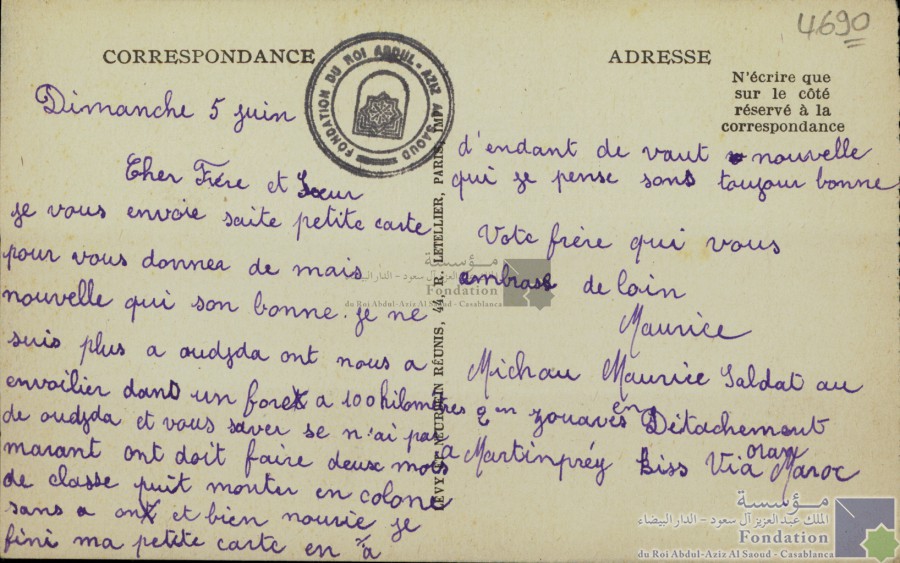 4690
CORRESPONDANCE
ADRESSE
N'écrire que
sur le côté
réservé à la
correspondance
FONDATION DU ROI ABDUL-AZIZ AL SAOUD
Dimanche 5 juin
Cher Frére et Sœur
je vous envoie saite petite carte
pour vous donner de mais
nouvelle qui son bonne. je ne
suis plus a oudjda ont nous a
envoilier dant un foret a 100 kilometres
de oudjda et vous saver se n'ai pas
marant ont doit faire deux mois
de classe puit monter en colone
sans a ont et bien nourie je
fini ma petite carte en a
LEVY ET NEURDEIN RÉUNIS, 44, R. LETELLIER, PARIS, IMP.
d'endant de vaut nouvelle
qui je pense sons toujour bonne
Vote frère qui vous
ambrase de loin
Maurice
Michau Maurice Saldat au
2 em zouaves en Détachement
a Martinpréy Kiss Via oran Maroc
مؤسسة
الملك عبد العزيز آل سعود - الدار البيضاء
Fondation
du Roi Abdul-Aziz Al Saoud - Casablanca
مؤسسة
الملك عبد العزيز آل سعود - الدار البيضاء
Fondation
du Roi Abdul-Aziz Al Saoud - Casablanca